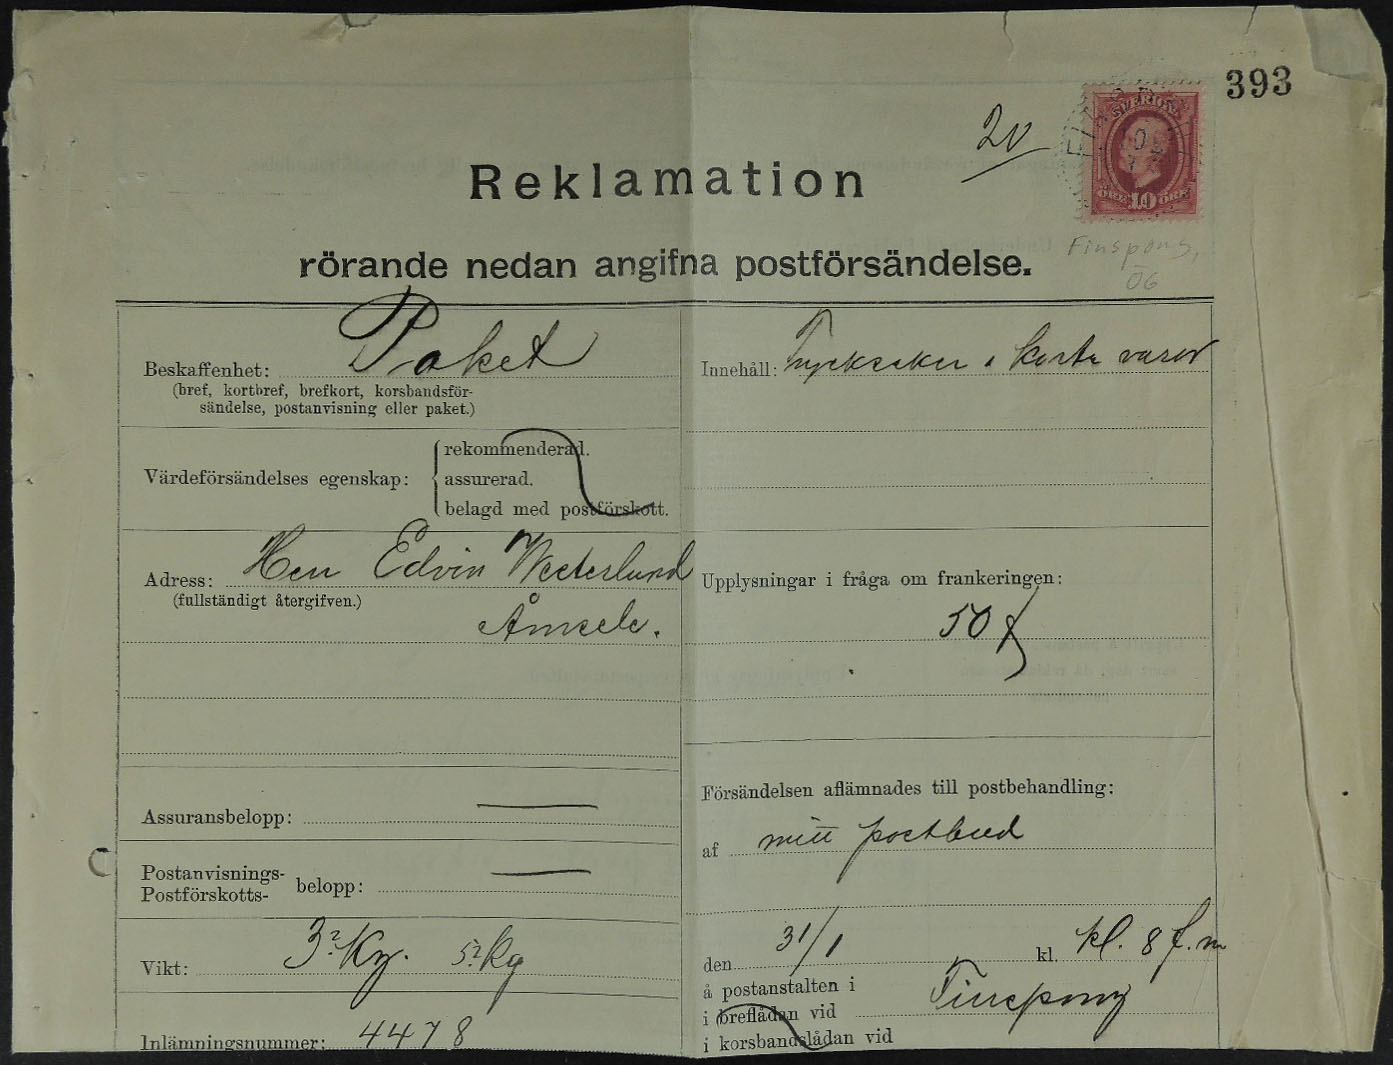 393
20
SVERIGE
10
Finspong,
06
Reklamation
rörande nedan angifna postförsändelse.
Beskaffenhet: Paket
(bref, kortbref, brefkort, korsbandsför-
sändelse, postanvisning eller paket.)
Värdeförsändelses egenskap:
rekommenderad.
assurerad.
belagd med postförskott.
Adress: Herr Edvin Westerlund
(fullständigt återgifven.)
Åmsele.
Assuransbelopp:
Postanvisnings-
Postförskotts- belopp:
Vikt: 3 Kg. 5 kg
Inlämningsnummer: 4478
Innehåll: Trycksaker & korta varor
Upplysningar i fråga om frankeringen:
50
Försändelsen aflämnades till postbehandling:
af mitt postbud
den 31/1 kl. kl. 8 f.m
å postanstalten i
i breflådan vid Finspong
i korsbandslådan vid